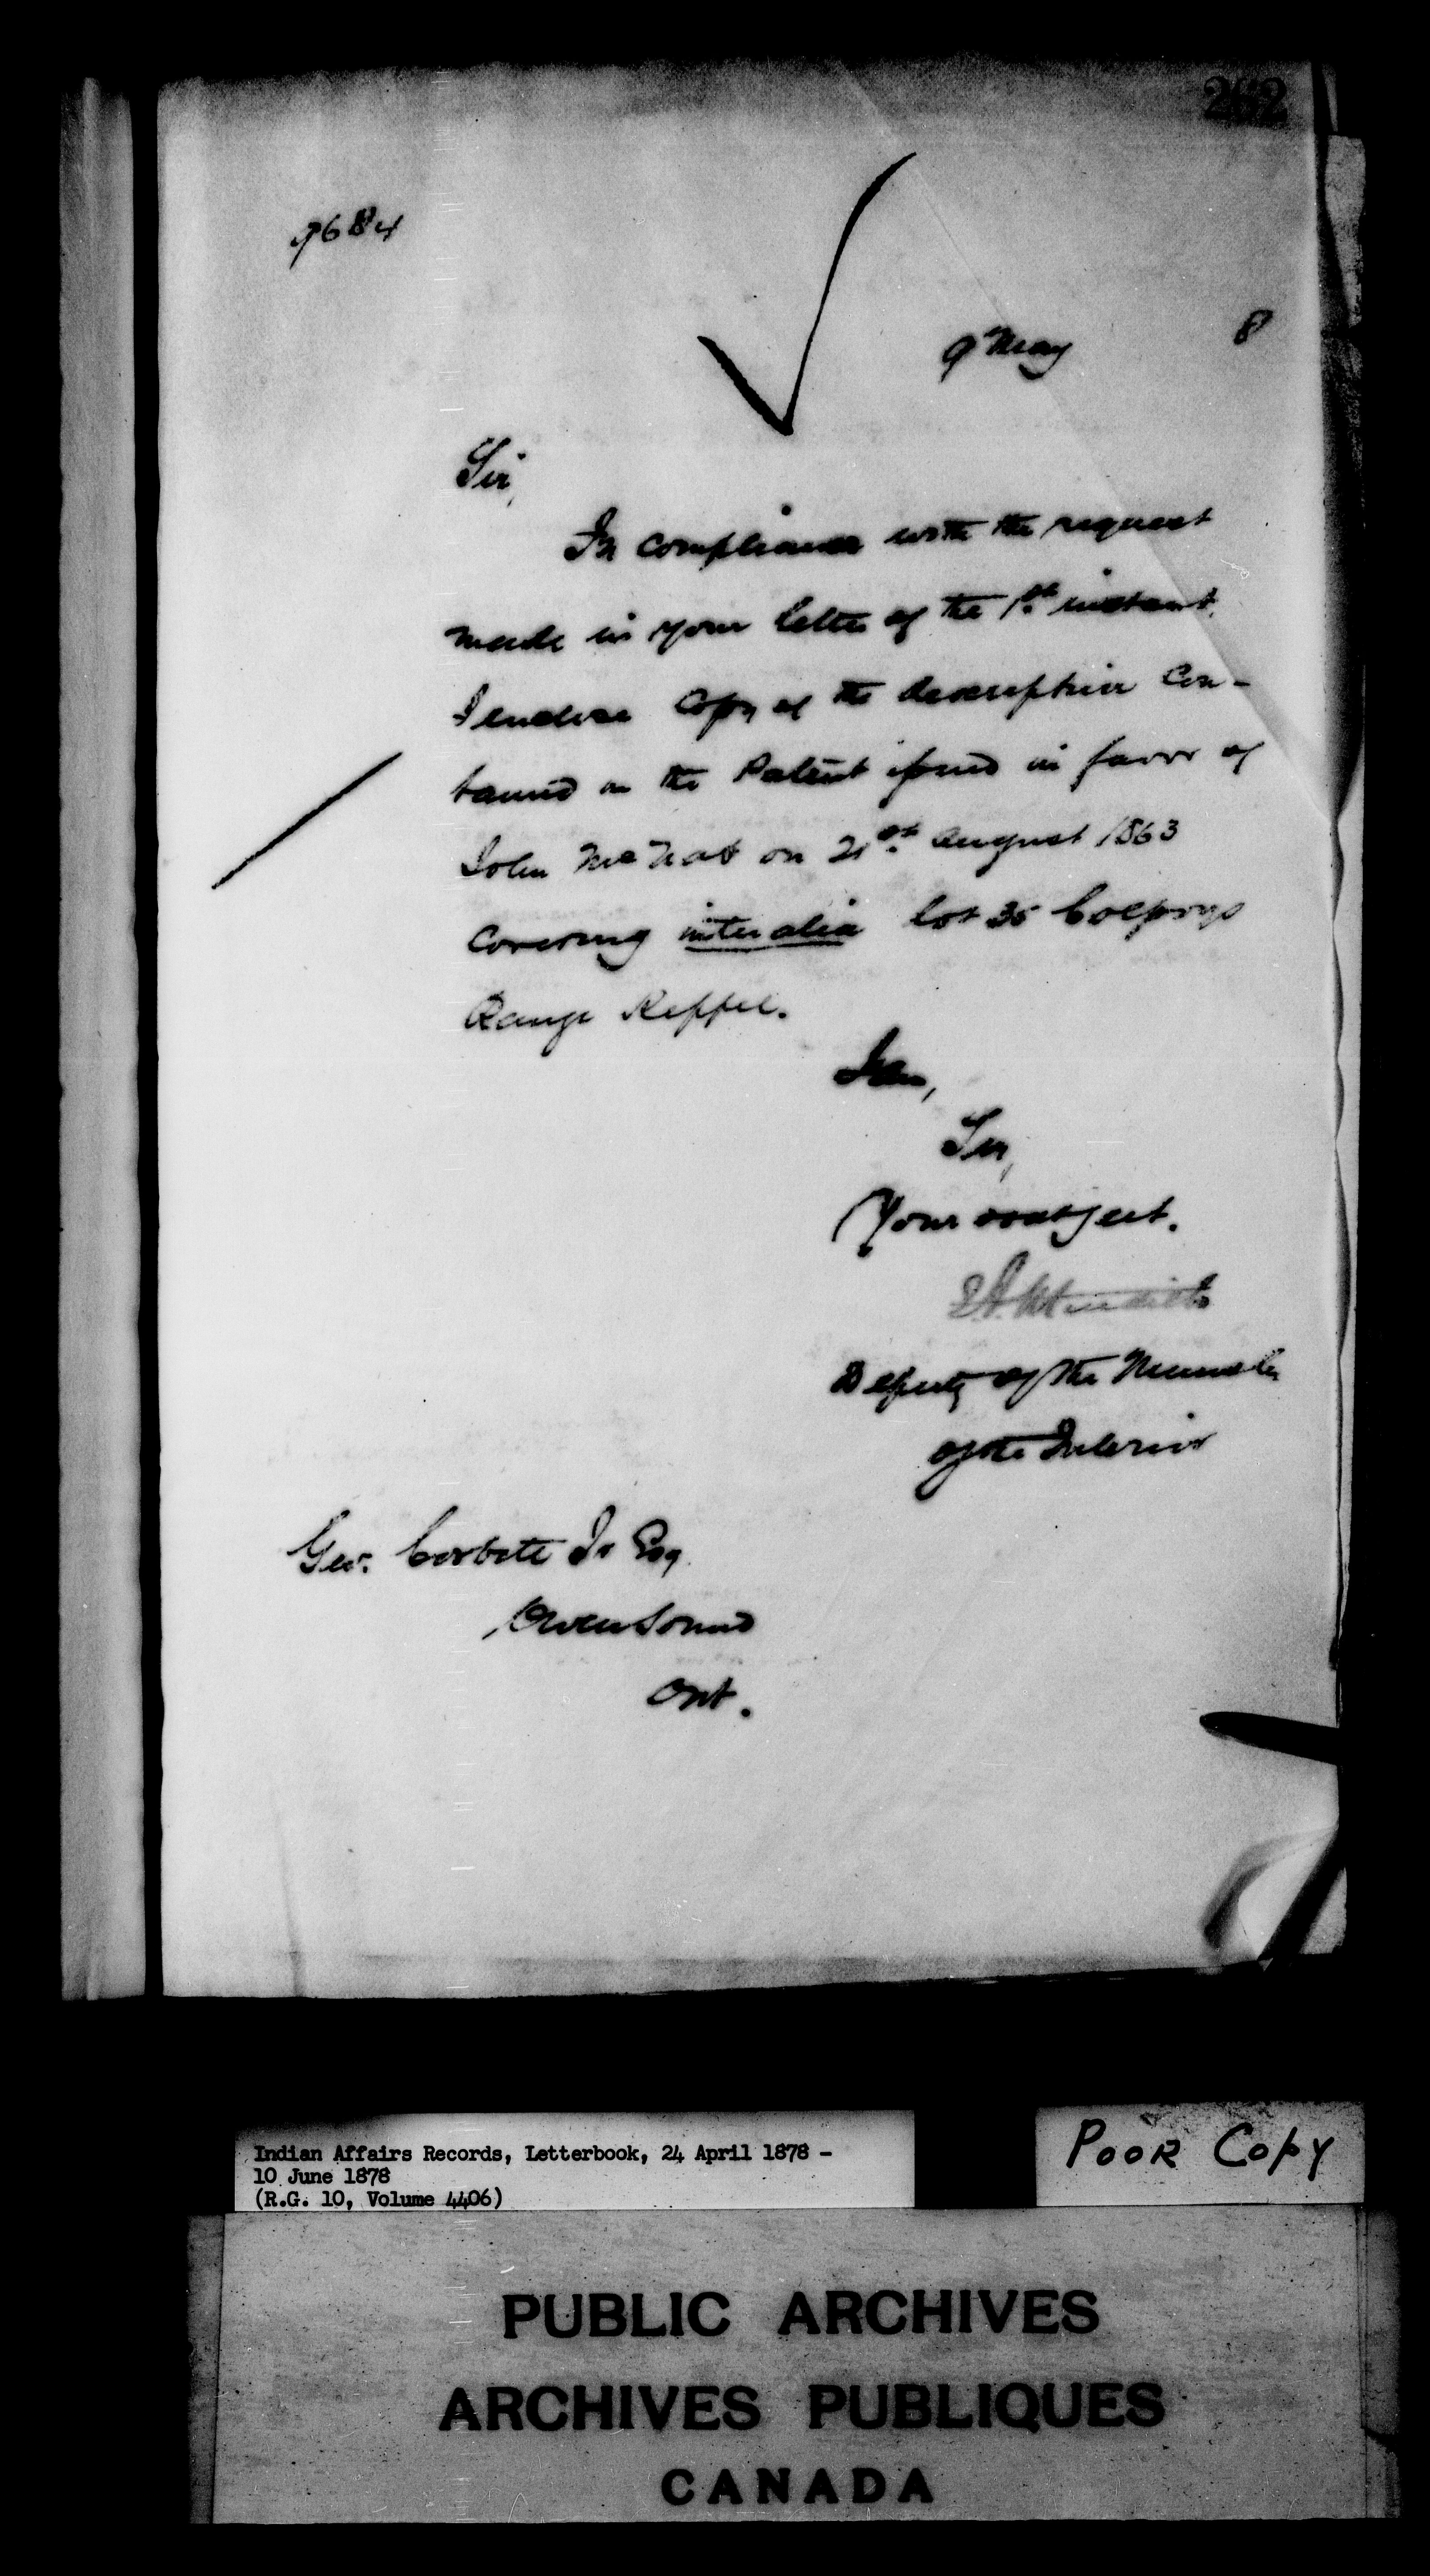 262
9684
9th May 8
Sir,
In compliance with the request
made in your letter of the 1st instant,
I enclose Copy of the description Con-
tained in the Patent issued in favor of
John McNab on 21st August 1863
Covering inter alia lot 35 Colpoys
Range Keppel.
I am,
Sir,
Your obt Sert.
E A Meredith
Deputy of the Minister
of the Interior
Geo. Corbett Jr Esq.
Owen Sound
Ont.
Indian Affairs Records, Letterbook, 24 April 1878 -
10 June 1878
(R.G. 10, Volume 4406)
POOR Copy
PUBLIC ARCHIVES
ARCHIVES PUBLIQUES
CANADA